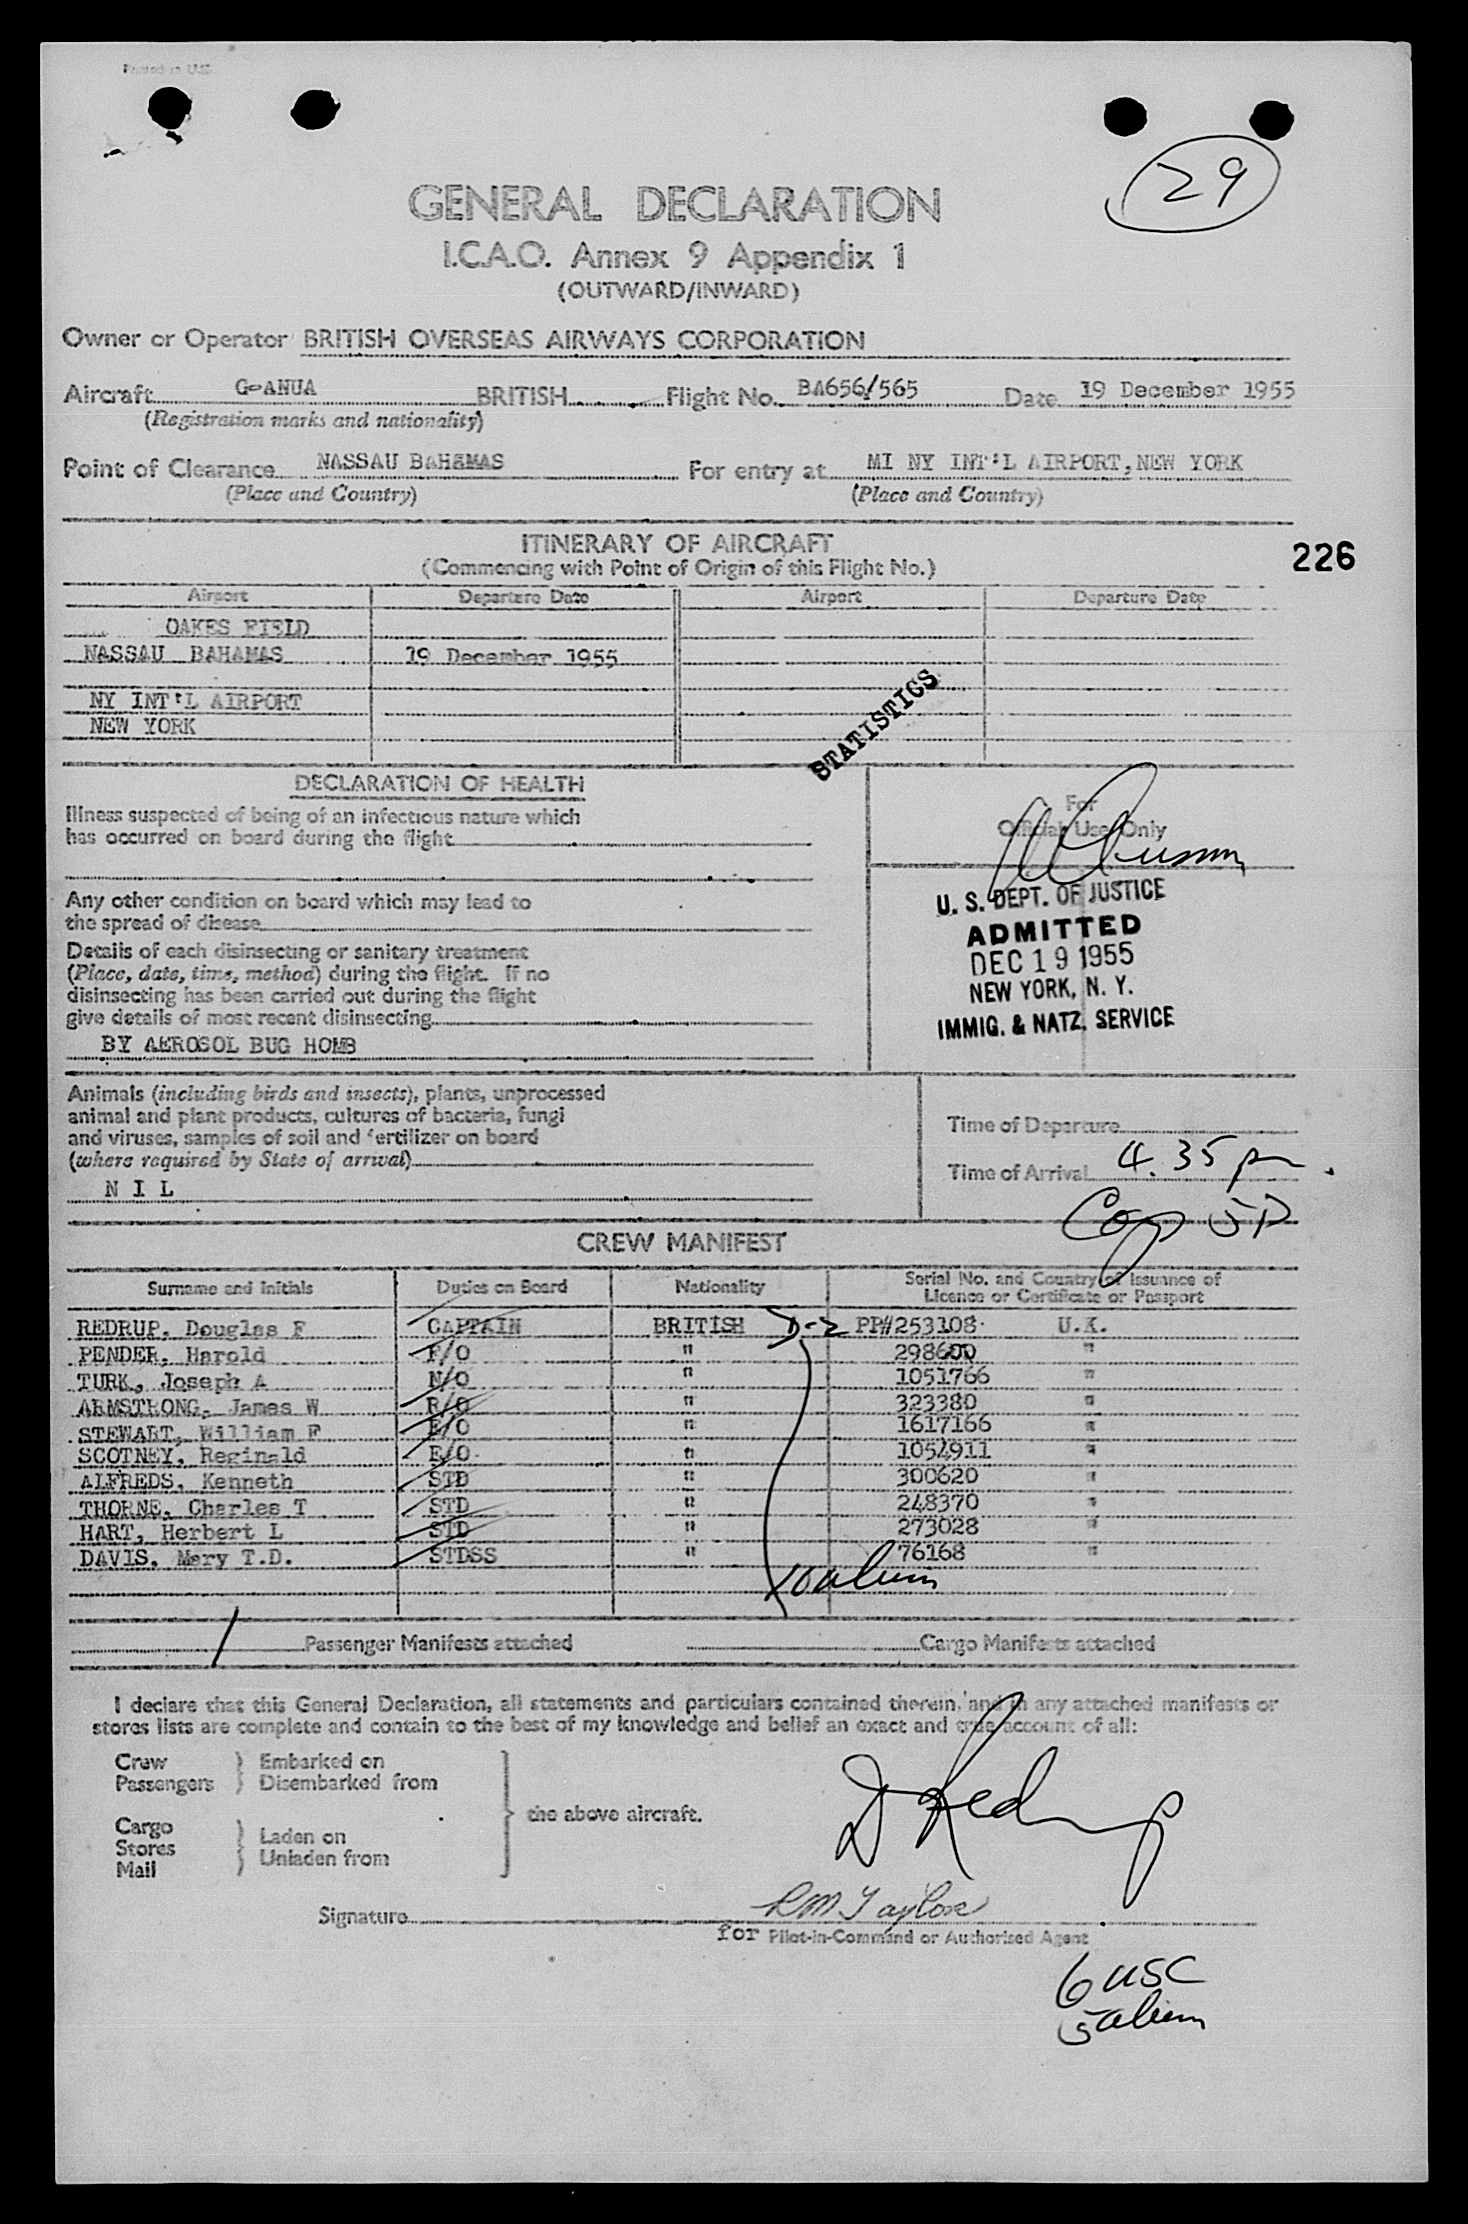 Printed in U.S.
29
GENERAL DECLARATION
I.C.A.O. Annex 9 Appendix 1
(OUTWARD/INWARD)
Owner or Operator BRITISH OVERSEAS AIRWAYS CORPORATION
Aircraft G-ANUA BRITISH Flight No. BA656/565 Date 19 December 1955
(Registration marks and nationality)
Point of Clearance NASSAU BAHAMAS For entry at MI NY INT'L AIRPORT, NEW YORK
(Place and Country) (Place and Country)
ITINERARY OF AIRCRAFT
226
(Commencing with Point of Origin of this Flight No.)
Airport Departure Date Airport Departure Date
OAKES FIELD
NASSAU BAHAMAS 19 December 1955
NY INT'L AIRPORT
NEW YORK
STATISTICS
DECLARATION OF HEALTH
Illness suspected of being of an infectious nature which
has occurred on board during the flight
For
Official Use Only
Any other condition on board which may lead to
the spread of disease
Details of each disinsecting or sanitary treatment
(Place, date, time, method) during the flight. If no
disinsecting has been carried out during the flight
give details of most recent disinsecting
BY AEROSOL BUG HOMB
U. S. DEPT. OF JUSTICE
ADMITTED
DEC 19 1955
NEW YORK, N. Y.
IMMIG. & NATZ. SERVICE
Animals (including birds and insects), plants, unprocessed
animal and plant products, cultures of bacteria, fungi
and viruses, samples of soil and fertilizer on board
(where required by State of arrival)
N I L
Time of Departure
Time of Arrival 4.35 pm.
CREW MANIFEST
Surname and Initials Duties on Board Nationality Serial No. and Country of Issuance of
Licence or Certificate or Passport
REDRUP, Douglas F CAPTAIN BRITISH D-2 PP#253108 U.K.
PENDER, Harold F/O " 298600 "
TURK, Joseph A N/O " 1051766 "
ARMSTRONG, James W R/O " 323380 "
STEWART, William F E/O " 1617166 "
SCOTNEY, Reginald E/O " 1054911 "
ALFREDS, Kenneth STD " 300620 "
THORNE, Charles T STD " 248370 "
HART, Herbert L STD " 273028 "
DAVIS, Mary T.D. STDSS " 76168 "
10 alien
1 Passenger Manifests attached Cargo Manifests attached
I declare that this General Declaration, all statements and particulars contained therein, and in any attached manifests or
stores lists are complete and contain to the best of my knowledge and belief an exact and true account of all:
Crew Embarked on
Passengers Disembarked from
the above aircraft.
Cargo Laden on
Stores Unladen from
Mail
D Redrup
Signature RM Taylor
for Pilot-in-Command or Authorised Agent
6 USC
5 alien